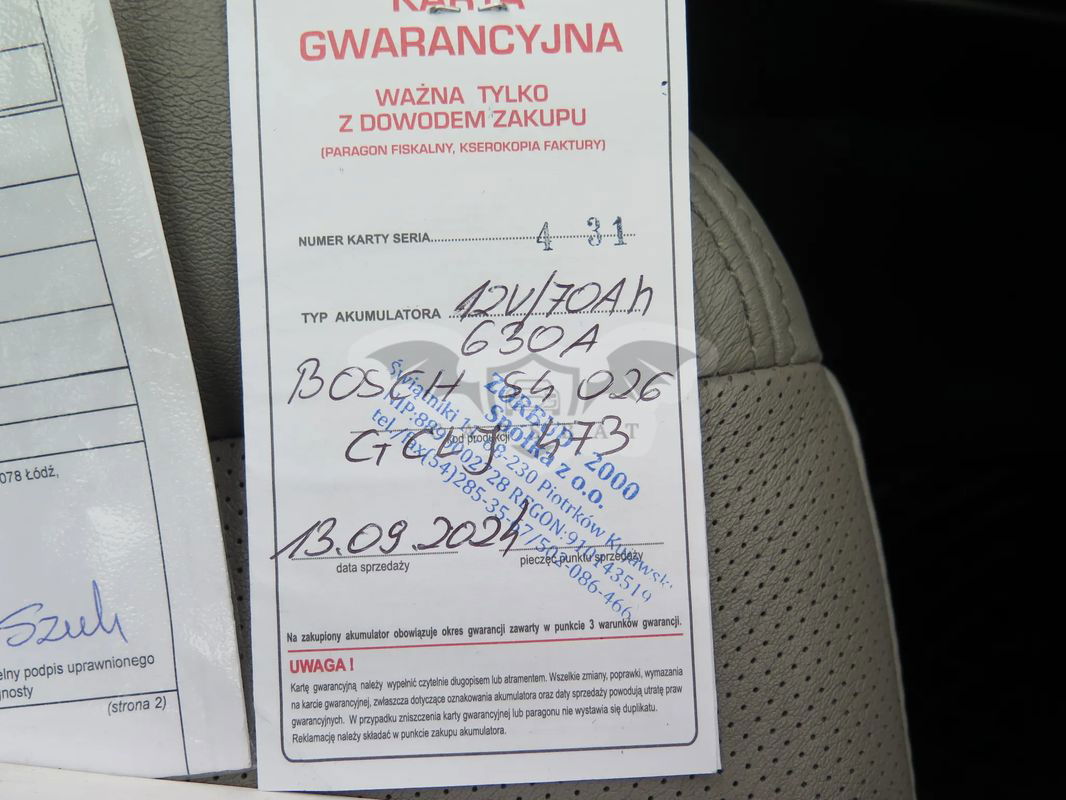 KARTA
GWARANCYJNA
WAŻNA TYLKO
Z DOWODEM ZAKUPU
(PARAGON FISKALNY, KSEROKOPIA FAKTURY)
NUMER KARTY SERIA 4 31
TYP AKUMULATORA 12V/70Ah
630A
BOSCH S4 026
kod produkcji
473
13.09.2024
data sprzedaży
pieczęć punktu sprzedaży
2000
Spółka z o.o.
Świątniki 88-230 Piotrków Kujawski
REGON:910143519
tel./fax(54)285-35 503-086-466
Na zakupiony akumulator obowiązuje okres gwarancji zawarty w punkcie 3 warunków gwarancji.
UWAGA !
Kartę gwarancyjną należy wypełnić czytelnie długopisem lub atramentem. Wszelkie zmiany, poprawki, wymazania
na karcie gwarancyjnej, zwłaszcza dotyczące oznakowania akumulatora oraz daty sprzedaży powodują utratę praw
gwarancyjnych. W przypadku zniszczenia karty gwarancyjnej lub paragonu nie wystawia się duplikatu.
Reklamację należy składać w punkcie zakupu akumulatora.
078 Łódź,
elny podpis uprawnionego
gnosty
(strona 2)